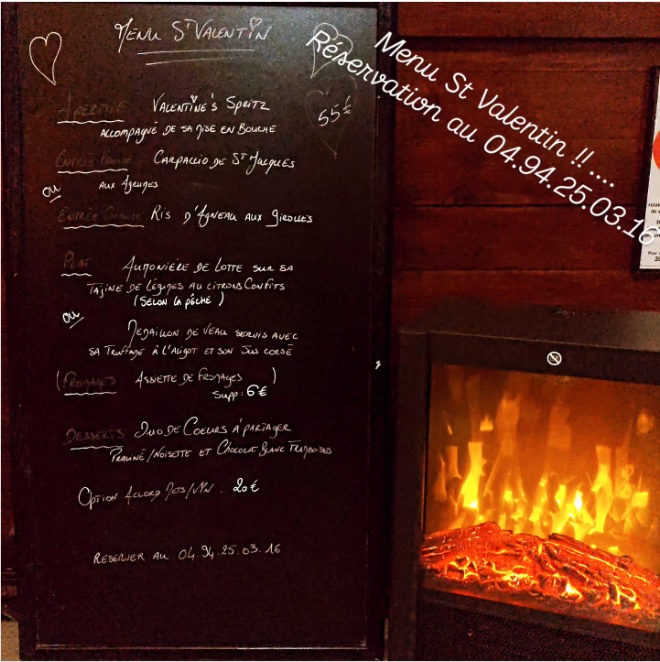 Menu St Valentin
55€
Apéritif Valentine's Spritz
accompagné de sa mise en bouche
Entrée Froide Carpaccio de St Jacques
aux Agrumes
ou
Entrée Chaude Ris d'Agneau aux Girolles
Plat Aumônière de Lotte sur sa
Tajine de Légumes au citrons Confits
(selon la pêche)
ou
Médaillon de Veau servis avec
sa Truffade à l'Aligot et son Jus corsé
(Fromages Assiette de Fromages)
Supp: 6€
Desserts Duo de Coeurs à partager
Praliné/Noisette et Chocolat Blanc Framboises
Option Accord Mets/Vin : 20€
Réserver au 04.94.25.03.16
Menu St Valentin !!....
Réservation au 04.94.25.03.16